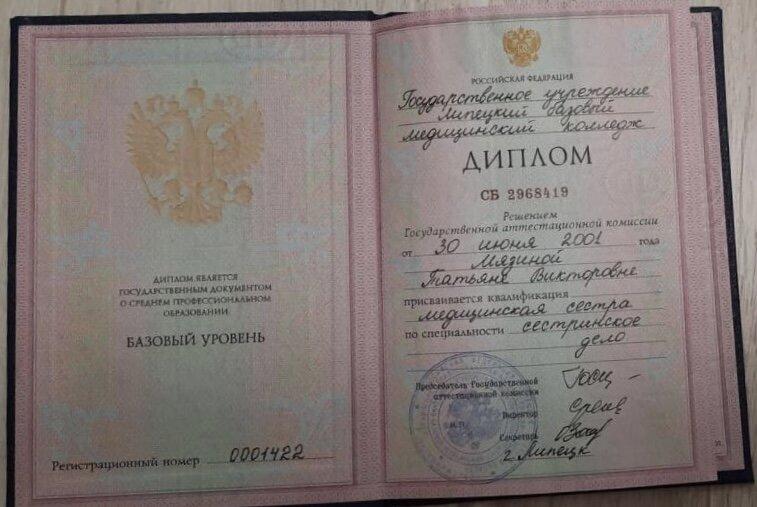 ДИПЛОМ ЯВЛЯЕТСЯ
ГОСУДАРСТВЕННЫМ ДОКУМЕНТОМ
О СРЕДНЕМ ПРОФЕССИОНАЛЬНОМ
ОБРАЗОВАНИИ
БАЗОВЫЙ УРОВЕНЬ
Регистрационный номер 0001422
РОССИЙСКАЯ ФЕДЕРАЦИЯ
Государственное учреждение
Липецкий базовый
медицинский колледж
ДИПЛОМ
СБ 2968419
Решением
Государственной аттестационной комиссии
от 30 июня 2001 года
Мязиной
Татьяне Викторовне
присваивается квалификация
медицинская сестра
по специальности сестринское
дело
Председатель Государственной
аттестационной комиссии
Директор
М.П.
Секретарь
г. Липецк